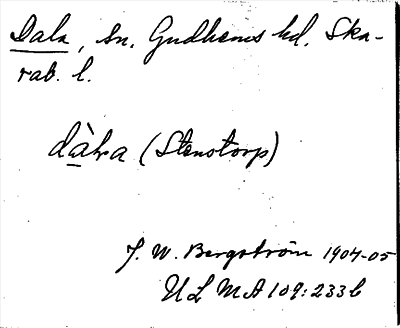 Dala, sn. Gudhems hd. Ska-
rab. l.
dàļra (Stenstorp)
J. W. Bergström 1904-05
ULMA 109:233b